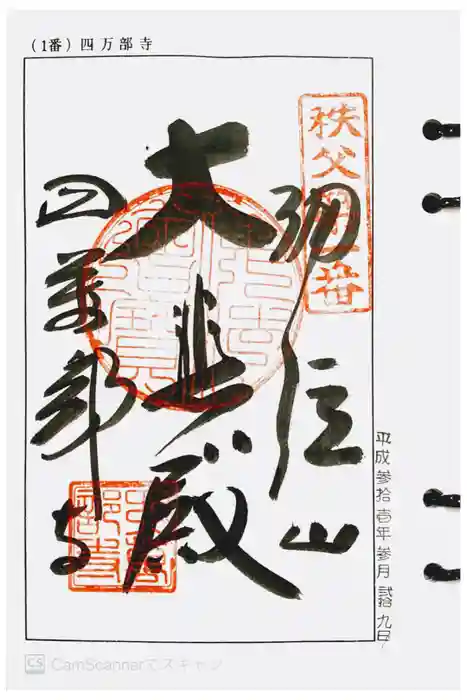 (1番) 四万部寺
秩父第一番
奉拝
誦経山
大悲殿
四萬部寺
平成参拾壱年参月弐拾九日
CS CamScannerでスキャン